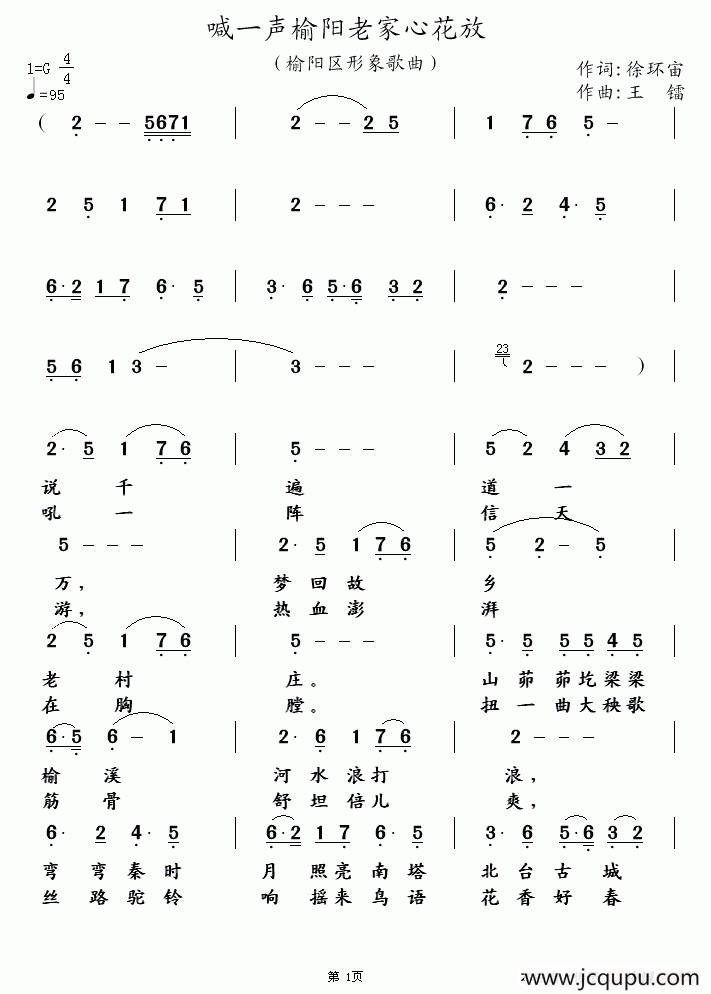 喊一声榆阳老家心花放
(榆阳区形象歌曲)
1=G 4/4
♩=95
作词:徐环宙
作曲:王 镭
( 2 - - 5671 | 2 - - 2 5 | 1 7 6 5 - |
2 5 1 7 1 | 2 - - - | 6· 2 4· 5 |
6·2 1 7 6· 5 | 3· 6 5·6 3 2 | 2 - - - |
5 6 1 3 - | 3 - - - | 23 2 - - - ) |
2· 5 1 7 6 | 5 - - - | 5 2 4 3 2 |
说 千 遍 道 一
吼 一 阵 信 天
5 - - - | 2· 5 1 7 6 | 5 2 - 5 |
万, 梦 回 故 乡
游, 热 血 澎 湃
2 5 1 7 6 | 5 - - - | 5· 5 5 5 4 5 |
老 村 庄。 山 茆 茆 圪 梁 梁
在 胸 膛。 扭 一 曲 大 秧 歌
6·5 6 - 1 | 2· 6 1 7 6 | 2 - - - |
榆 溪 河 水 浪 打 浪,
筋 骨 舒 坦 倍 儿 爽,
6· 2 4· 5 | 6·2 1 7 6· 5 | 3· 6 5·6 3 2 |
弯 弯 秦 时 月 照 亮 南 塔 北 台 古 城
丝 路 驼 铃 响 摇 来 鸟 语 花 香 好 春
第 1页
www.jcqupu.com